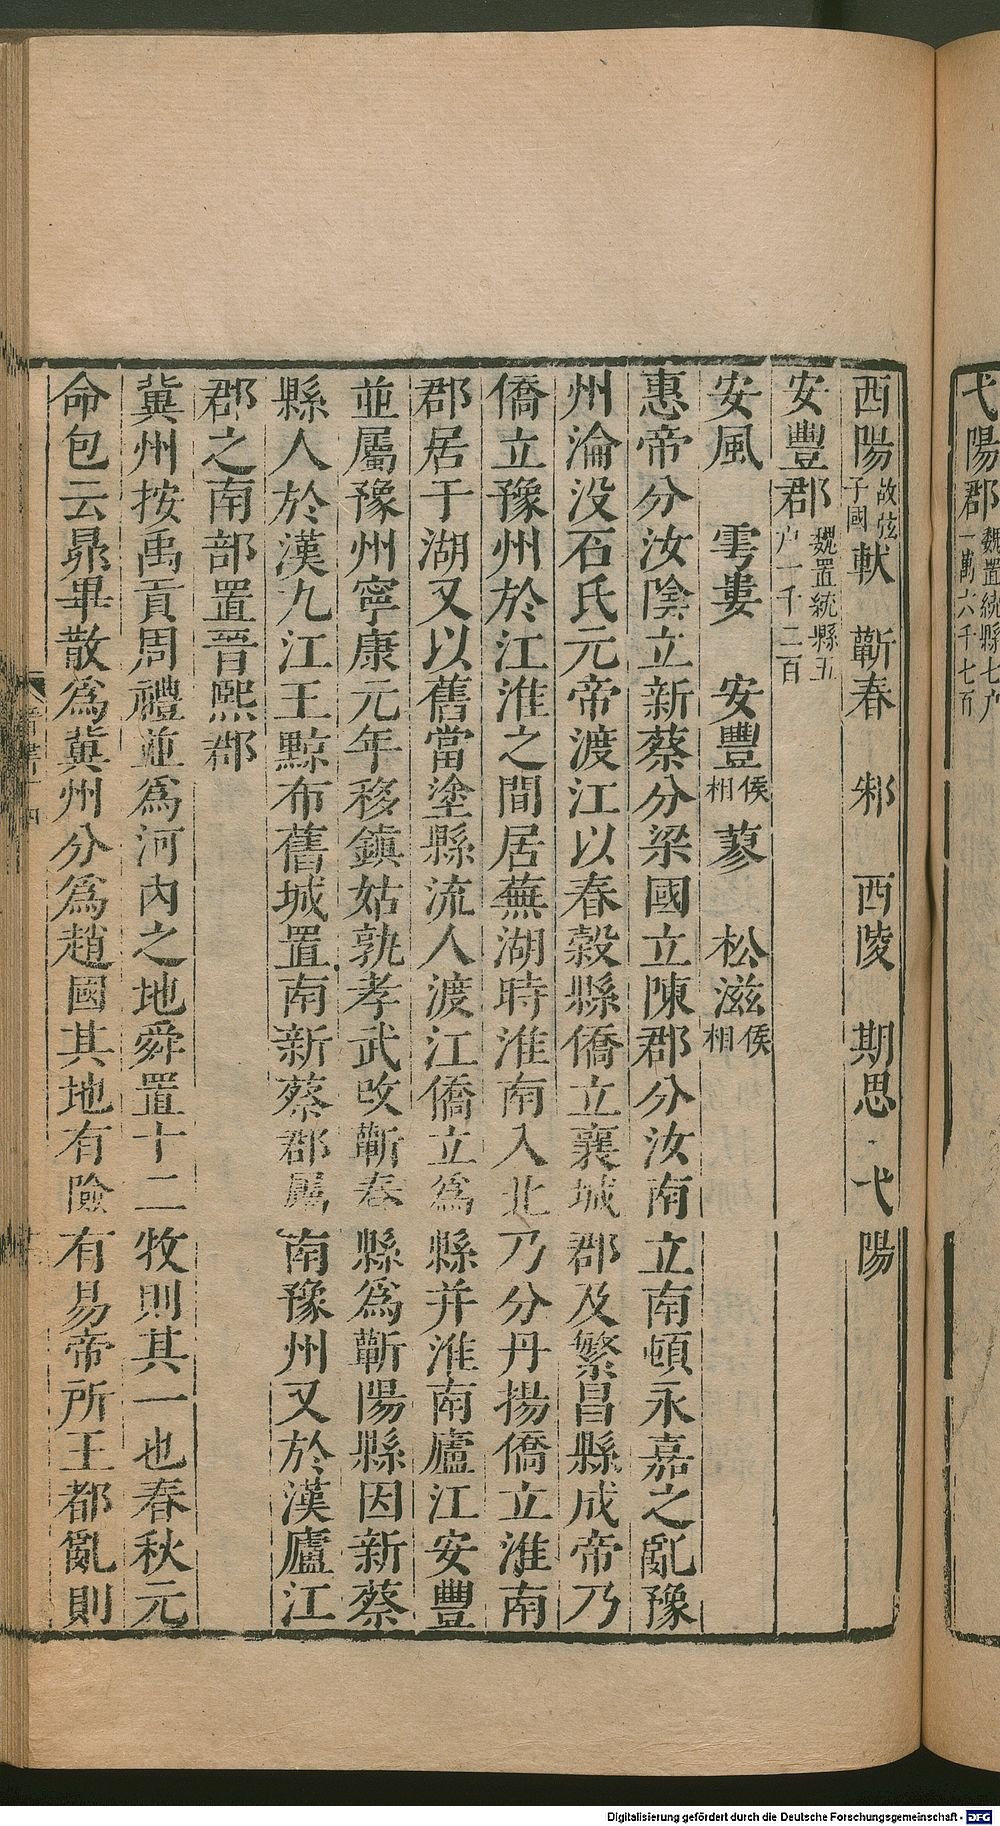 弋陽郡魏置統縣七户一萬六千七百
西陽故弦子國 軑 蘄春 邾 西陵 期思 弋陽
安豐郡魏置統縣五户一千二百
安風 雩婁 安豐侯相 蓼 松滋侯相
惠帝分汝陰立新蔡分梁國立陳郡分汝南立南頓永嘉之亂豫
州淪没石氏元帝渡江以春穀縣僑立襄城郡及繁昌縣成帝乃
僑立豫州於江淮之間居蕪湖時淮南入北乃分丹揚僑立淮南
郡居于湖又以舊當塗縣流人渡江僑立爲縣并淮南廬江安豐
並屬豫州寧康元年移鎮姑孰孝武改蘄春縣爲蘄陽縣因新蔡
縣人於漢九江王黥布舊城置南新蔡郡屬南豫州又於漢廬江
郡之南部置晉熙郡
冀州按禹貢周禮並爲河内之地舜置十二牧則其一也春秋元
命包云昴畢散爲冀州分爲趙國其地有險有易帝所王都亂則
Digitalisierung gefördert durch die Deutsche Forschungsgemeinschaft - DFG